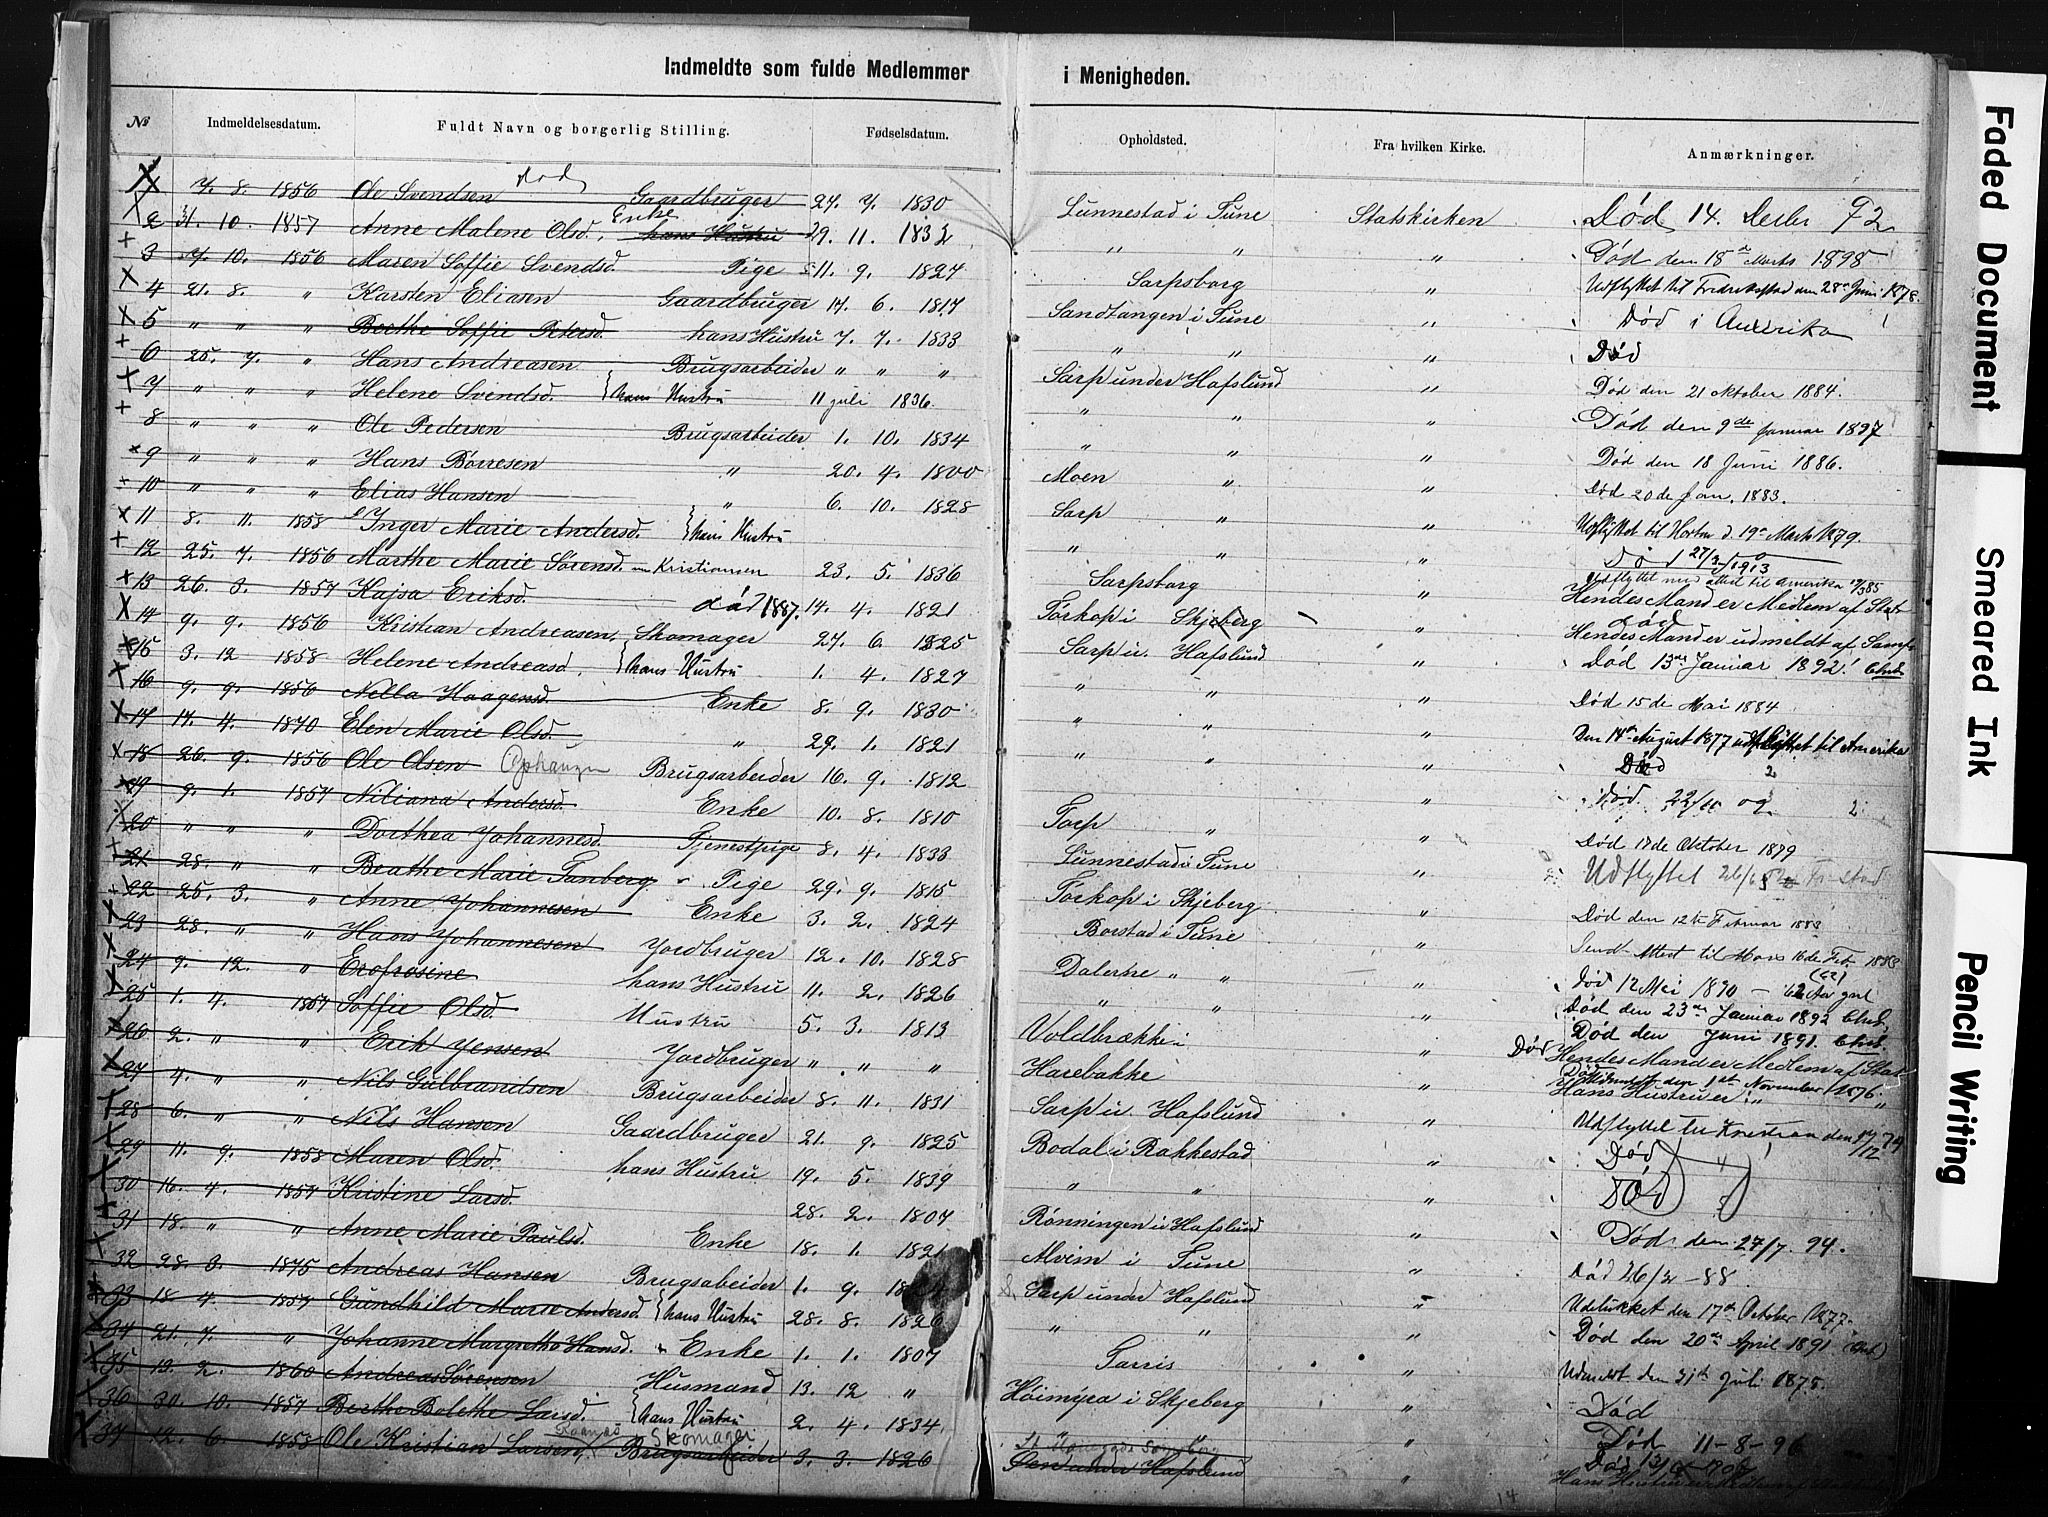 Indmeldte som fulde Medlemmer i Menigheden.
№ Indmeldelsesdatum. Fuldt Navn og borgerlig Stilling. Fødselsdatum. Opholdsted. Fra hvilken Kirke. Anmærkninger.
Død
1 7. 8. 1856 Ole Svendsen Gaardbruger 27. 7. 1830 Lunnestad i Tune Statskirken Død 14. Decbr 92
Enke
2 31. 10. 1857 Anne Malene Olsd. hans Hustru 29. 11. 1832 " " " Død den 18de Marts 1898
3 7. 10. 1856 Maren Soffie Svendsd. Pige 11. 9. 1827 Sarpsborg " Udflyttet til Fredrikstad den 28de Juni 1878.
4 21. 8. " Karsten Eliasen Gaardbruger 17. 6. 1817 Sandtangen i Tune " Død i Amerika
5 " " " Berthe Soffie Petersd. hans Hustru 7. 7. 1833 " " " Død
6 25. 7. " Hans Andreasen Brugsarbeider " " " Sarp under Hafslund " Død den 21 Oktober 1884.
7 " " " Helene Svendsd. hans Hustru 11 juli 1836. " " " Død den 9de Januar 1897
8 " " " Ole Pedersen Brugsarbeider 1. 10. 1834 " " " Død den 18 Juni 1886.
9 " " " Hans Børresen " 20. 4. 1800 Moen " " Død 20de Jan. 1883.
10 " " " Elias Hansen " 6. 10. 1828 Sarp " " Udflyttet til Horten d. 19de Marts 1879.
11 8. 11. 1858 Inger Marie Andersd. hans Hustru " " " Død 27/2 1913
12 25. 7. 1856 Marthe Marie Sørensd. Kristiansen 23. 5. 1836 Sarpsborg " Udflyttet med attest til Amerika
Hendes Mand er Medlem af Stat
13 26. 3. 1857 Kajsa Eriksd. død 1887. 14. 4. 1821 Torkop i Skjeberg " Død
Hendes Mand er udmeldt af Samf.
14 9. 9. 1856 Kristian Andreasen, Skomager 27. 6. 1825 Sarp u. Hafslund " Død 13de Januar 1892.
15 3. 12 1858 Helene Andreasd. hans Hustru 1. 4. 1827 " " " Død 15de Mai 1884
16 9. 9. 1856 Nella Haagensd. Enke 8. 9. 1830 " " " Den 14de August 1877 udflyttet til Amerika
17 17. 4. 1870 Elen Marie Olsd. " 29. 1. 1821 " " " Død
18 26. 9. 1856 Ole Olsen Brugsarbeider 16. 9. 1812 " Død
19 9. 1. 1857 Niliana Andersd. Enke 10. 8. 1810 Torp " " Død 17de Oktober 1879
20 " " " Dorthea Johannesd. Tjenestpige 8. 4. 1833 Lunnestad i Tune " Udflyttet
21 28. " " Berthe Marie Tanberg Pige 29. 9. 1815 Torkop i Skjeberg " Død den 12te Februar 1888
22 25. 3. " Anne Johannesen Enke 3. 2. 1824 Borstad i Tune " Sendt Attest til Moss 16de Feb. 1883
23 28. " " Hans Johannesen Jordbruger 12. 10. 1828 Dalerne " " " Død 12 Mai 1890
24 9. 12. " Erofrosine hans Hustru 11. 2. 1826 " " " Død den 23de Januar 1892
25 1. 4. 1857 Soffie Olsd. Hustru 5. 3. 1813 Voldbrække i " Død den Juni 1891.
Død Hendes Mand er Medlem af Stat
26 2. " " Erik Jensen Jordbruger " " " Harebakke " Udmeldt den 1ste November 1876.
Hans Hustru er "
27 4. " " Nils Gulbrandsen Brugsarbeider 8. 11. 1831 Sarp u Hafslund " Udflyttet til Kristian
28 6. " " Nils Hansen Gaardbruger 21. 9. 1825 Bodal i Rakkestad " Død
29 11. 9. 1858 Maren Olsd. hans Hustru 19. 5. 1839 " " " Død
30 16. 4. 1857 Kristine Larsd. 28. 2. 1807 Rønningen i Hafslund " Død den 27/7. 94.
31 18. " " Anne Marie Paulsd. Enke 18. 1. 1821 Alvim i Tune " Død 26/2 - 88
32 28. 3. 1875 Andreas Hansen Brugsabeider 1. 9. Sarp under Hafslund " Udelukket den 17de October 1877.
33 18. 4. 1857 Gundhild Marie Andersd. hans Hustru 28. 8. 1826 " " " Død den 20de April 1891
34 21. 7. " Johanne Margrethe Hansd. Enke 1. 1. 1807 Tarris " Udmeldt den 31te Juli 1875.
35 13. 2. 1860 Andreas Sørensen Husmand 13. 12 " Høimyra i Skjeberg " Død
36 30. 10. 1857 Berthe Bolethe Larsd. hans Hustru 2. 4. 1834. " Død 11-8-96
Skomager
37 12. 6. 1858 Ole Kristian Larsen Brugsarbeider 3. 3. 1826 under Hafslund " Død
14
Faded Document
Smeared Ink
Pencil Writing